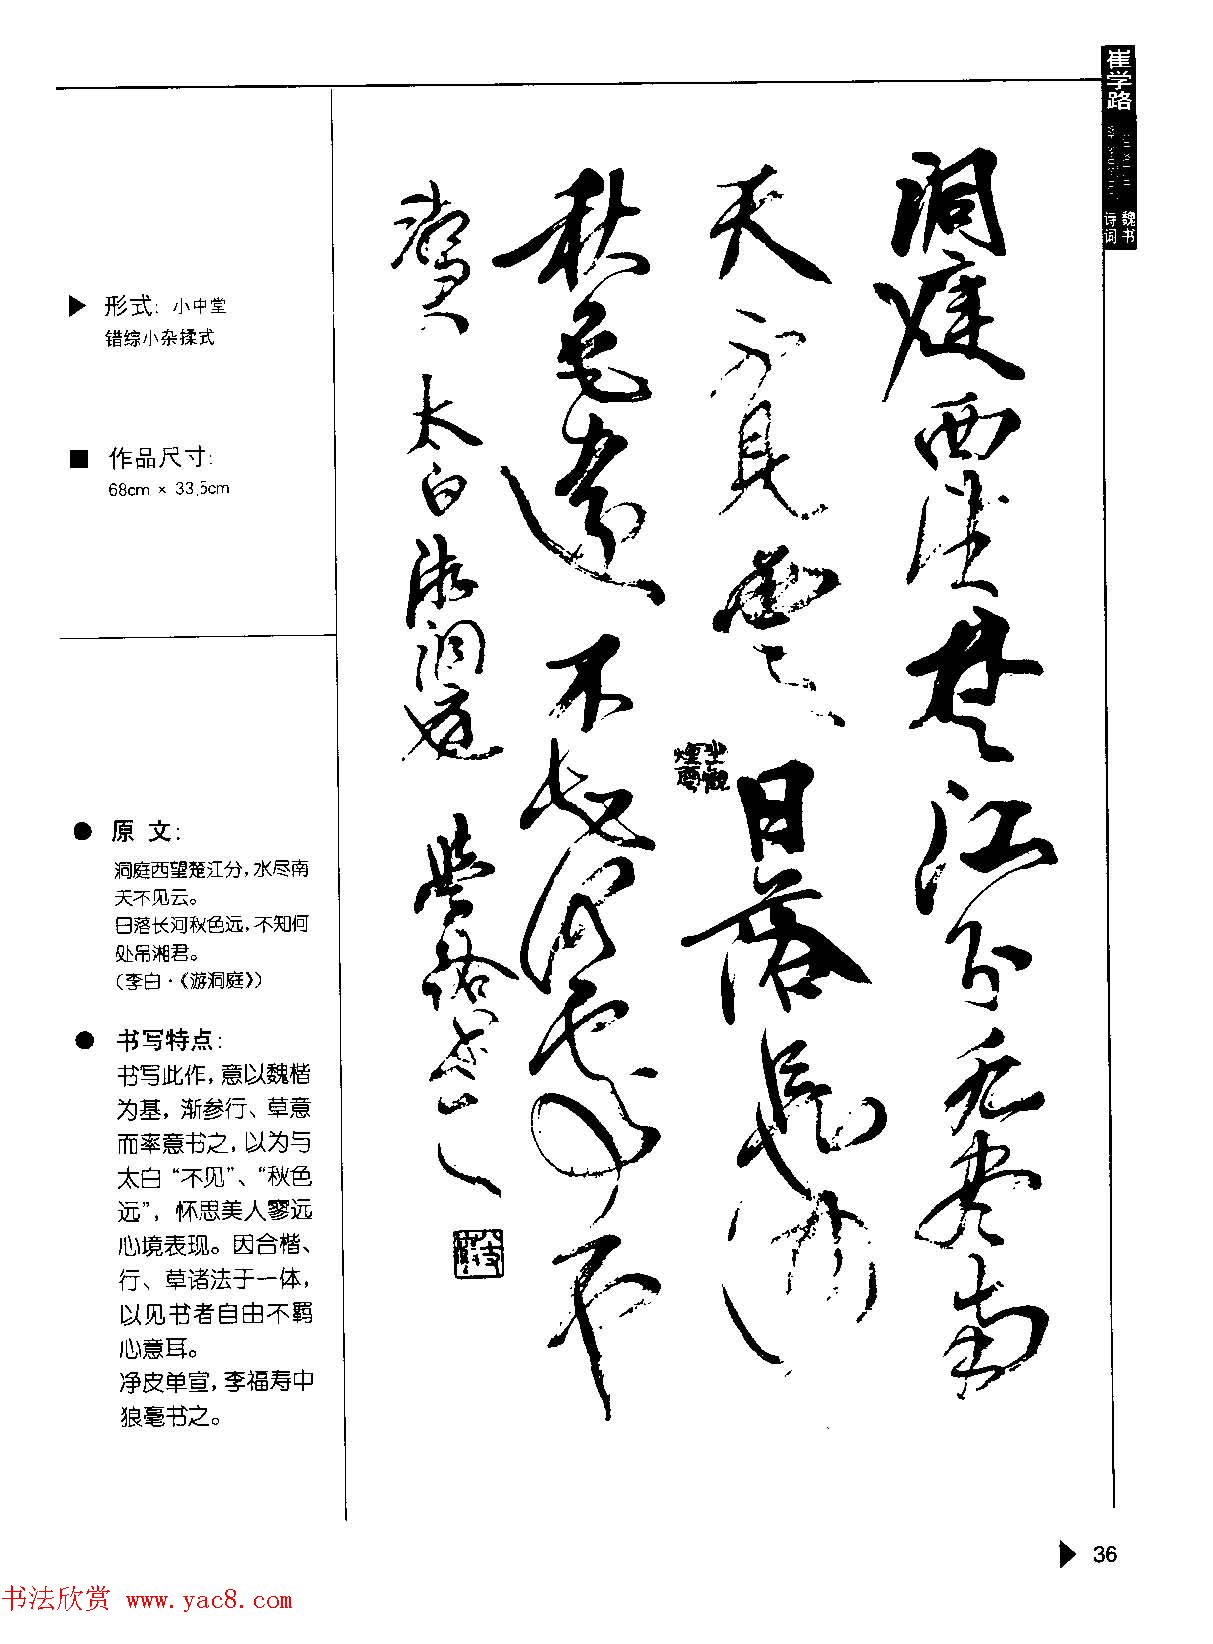 崔学路
魏书
诗词
形式：小中堂
错综小杂揉式
作品尺寸：
68cm × 33.5cm
原 文：
洞庭西望楚江分，水尽南
天不见云。
日落长河秋色远，不知何
处吊湘君。
（李白·《游洞庭》）
书写特点：
书写此作，意以魏楷
为基，渐参行、草意
而率意书之，以为与
太白“不见”、“秋色
远”，怀思美人寥远
心境表现。因合楷、
行、草诸法于一体，
以见书者自由不羁
心意耳。
净皮单宣，李福寿中
狼毫书之。
洞庭西望楚江分水尽南
天不見雲日落長河
秋色遠不知何處弔
湘君 太白游洞庭 學路書
36
书法欣赏 www.yac8.com